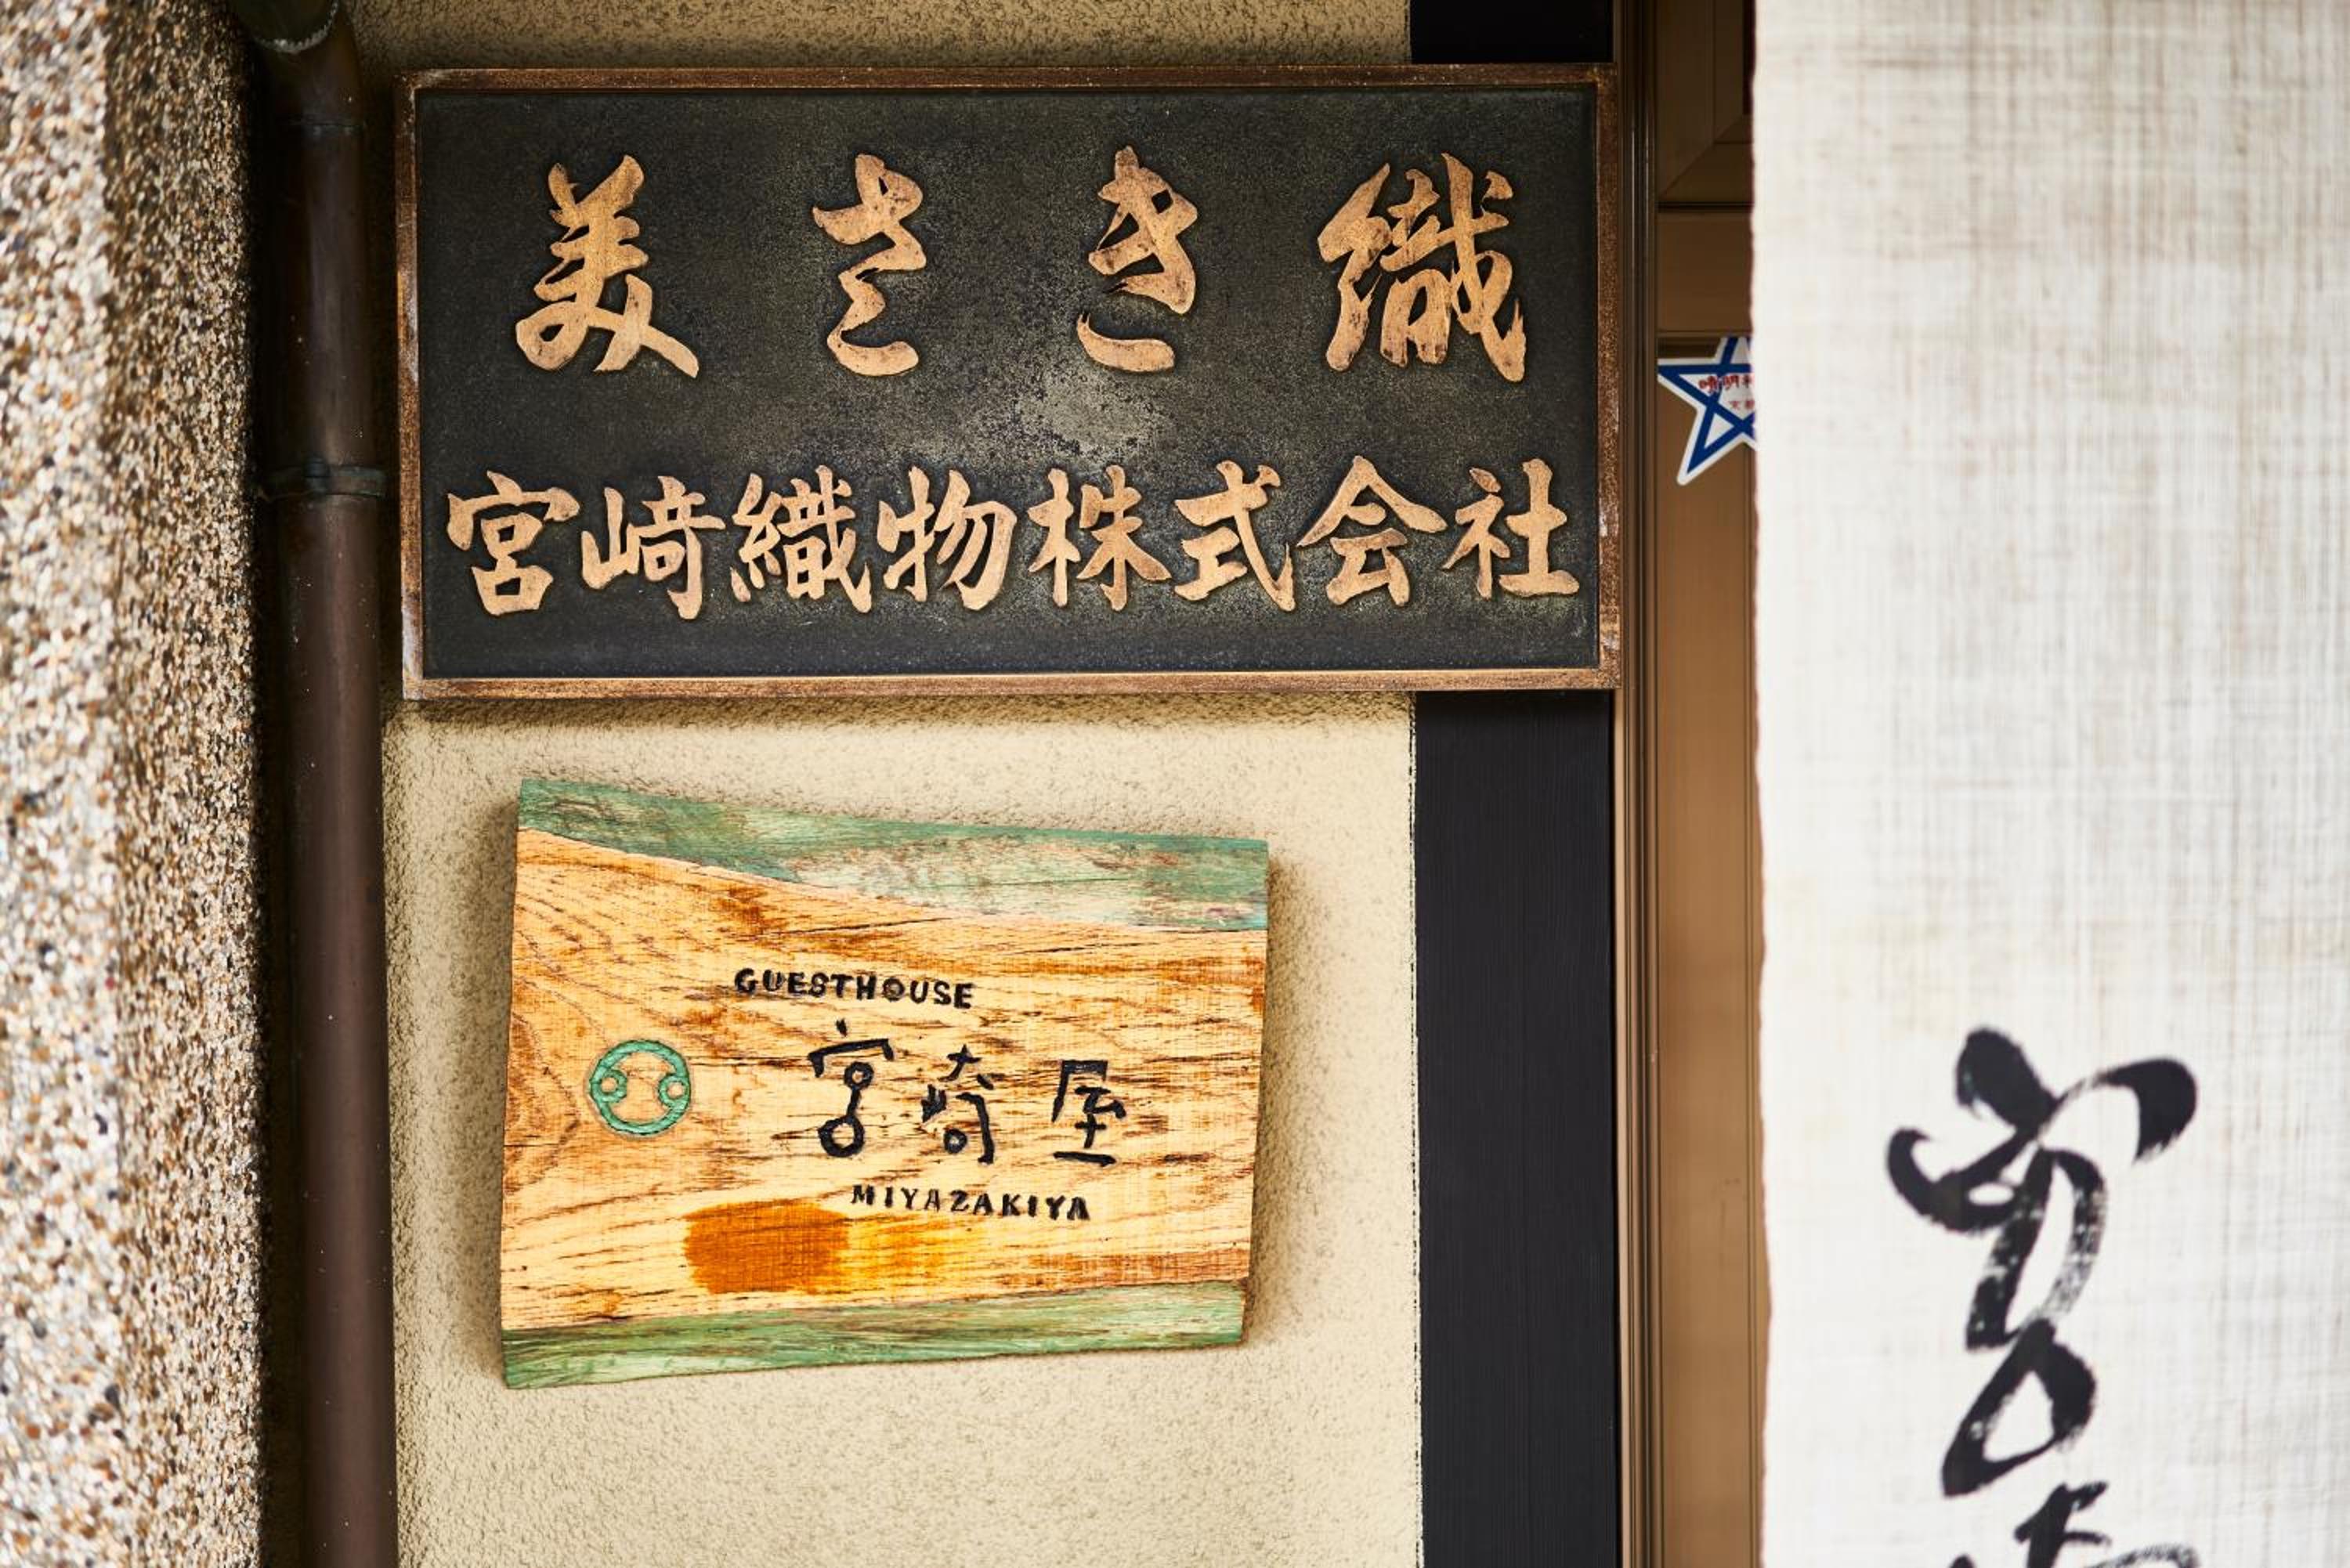 美さき織
宮崎織物株式会社
GUESTHOUSE
宮崎屋
MIYAZAKIYA
晴明
宮